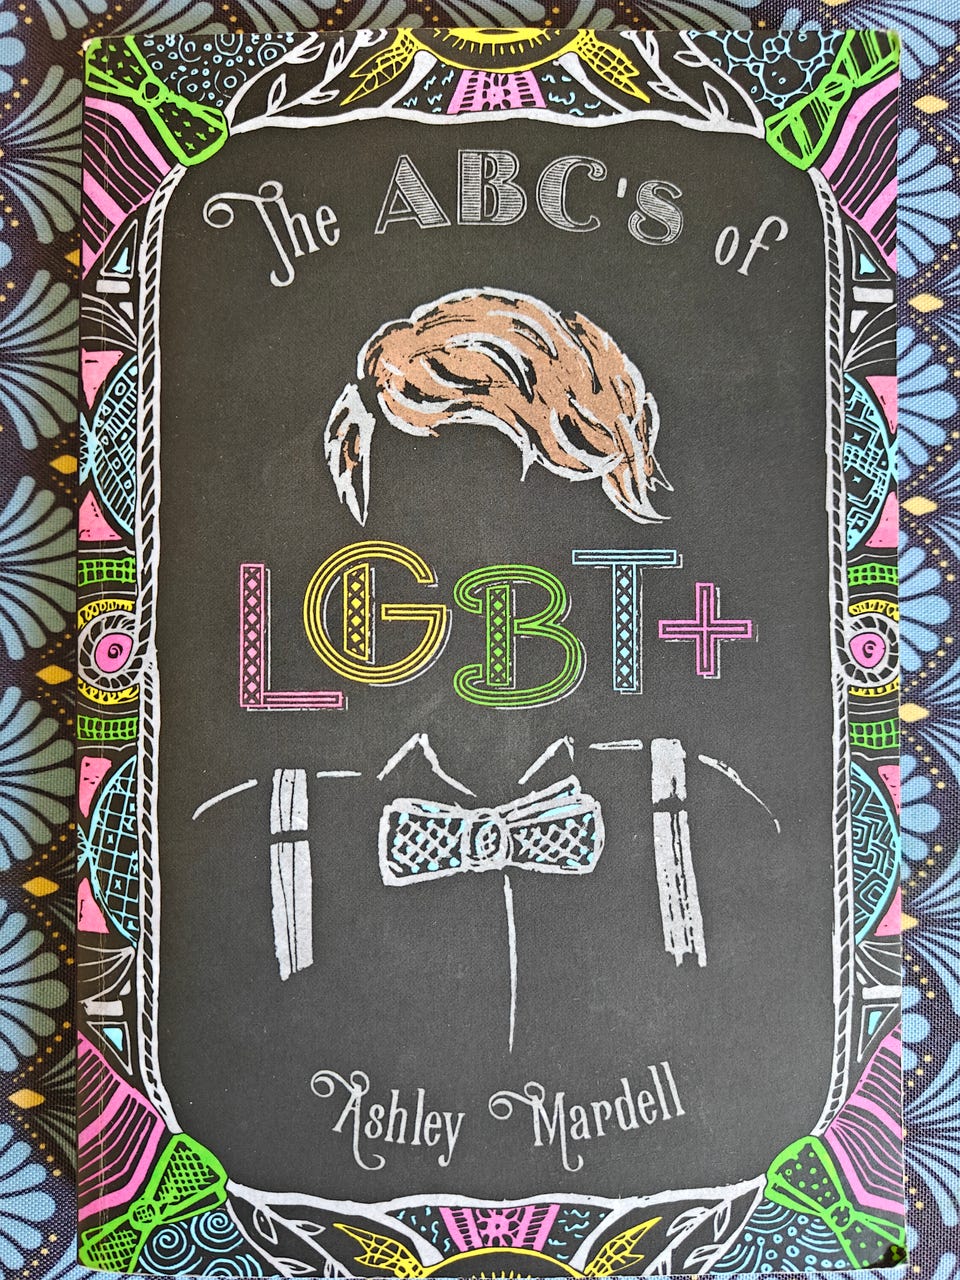 The ABC's of
LGBT+
Ashley Mardell